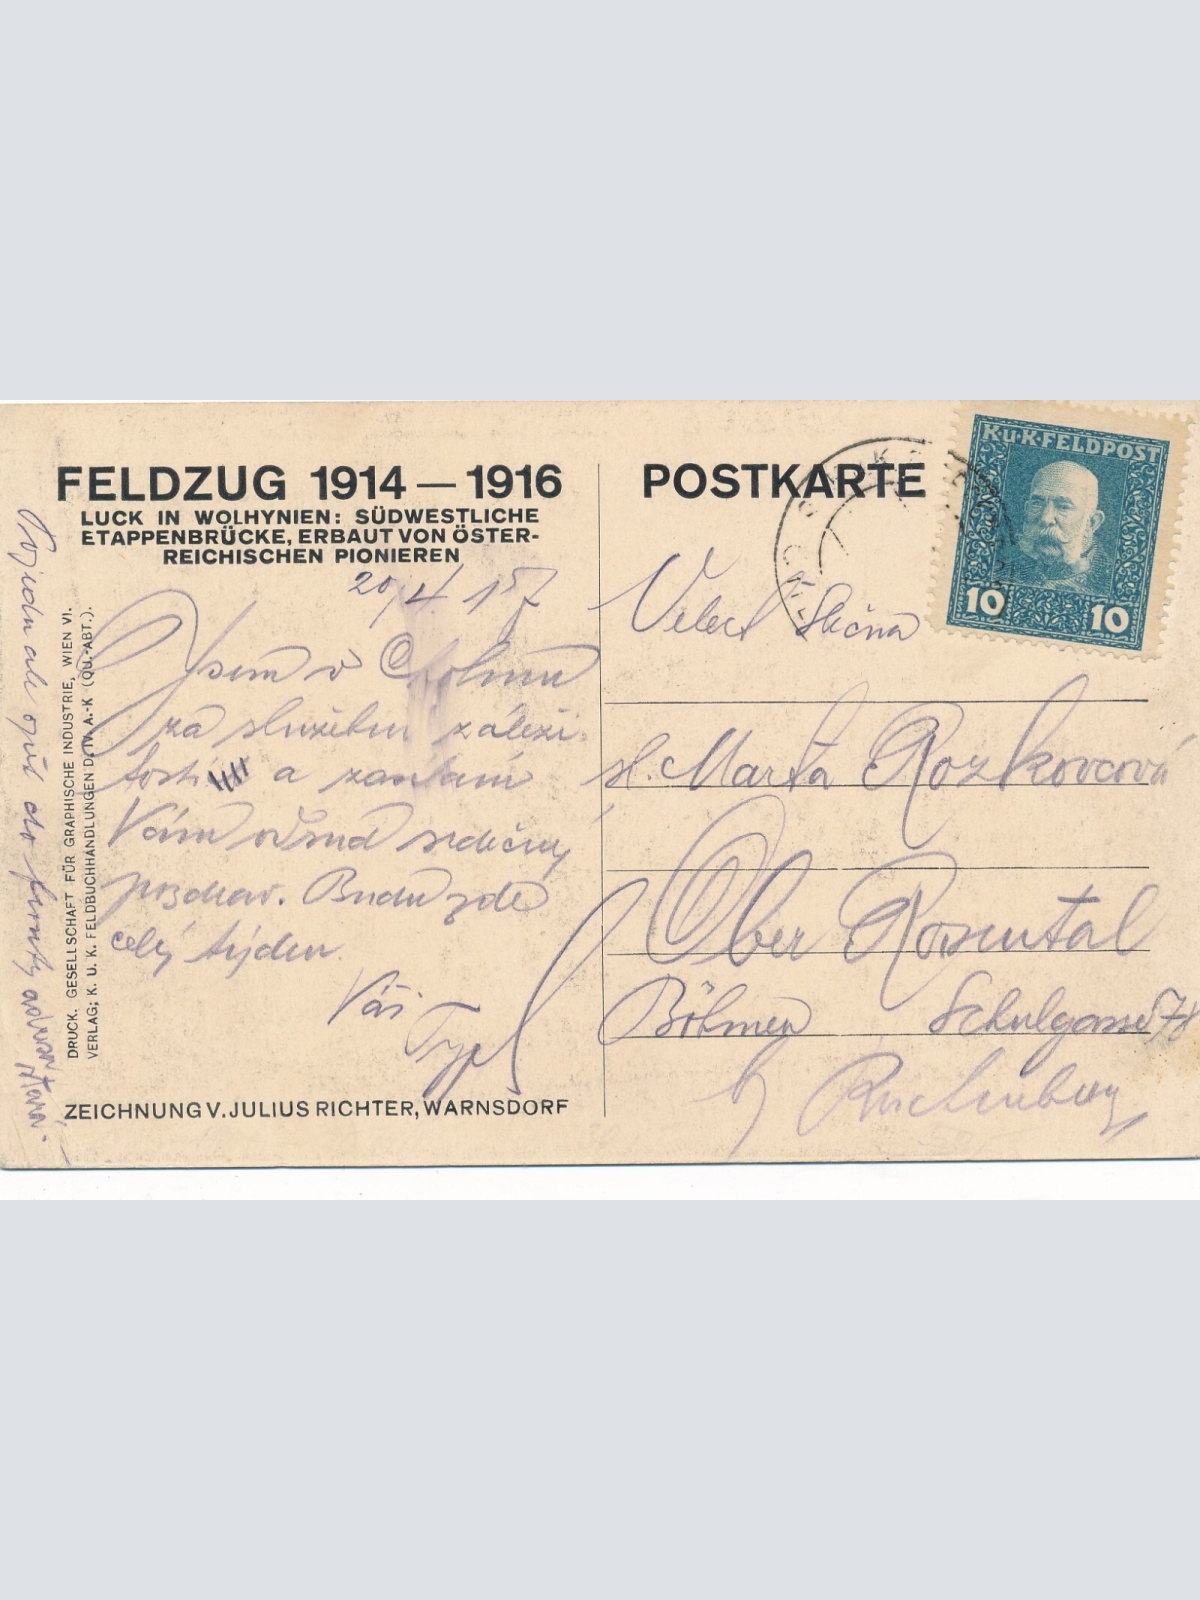 FELDZUG 1914 — 1916
LUCK IN WOLHYNIEN: SÜDWESTLICHE
ETAPPENBRÜCKE, ERBAUT VON ÖSTER-
REICHISCHEN PIONIEREN
20/4 17
Jsem v Cholmu
za služební záleži-
tostí a zasílám
Vám srdečný
pozdrav. Budu zde
celý týden.
Váš
ZEICHNUNG V. JULIUS RICHTER, WARNSDORF
DRUCK. GESELLSCHAFT FÜR GRAPHISCHE INDUSTRIE, WIEN VI.
VERLAG; K. U. K. FELDBUCHHANDLUNGEN D. IV. A.-K (QU.-ABT.).
Pojedu ale opět do
POSTKARTE
K.u.K. FELDPOST
10 10
Velect Slečna
sl. Marta Rozkovcová
Ober Rosental
Böhmen Schulgasse
b/ Reichenberg